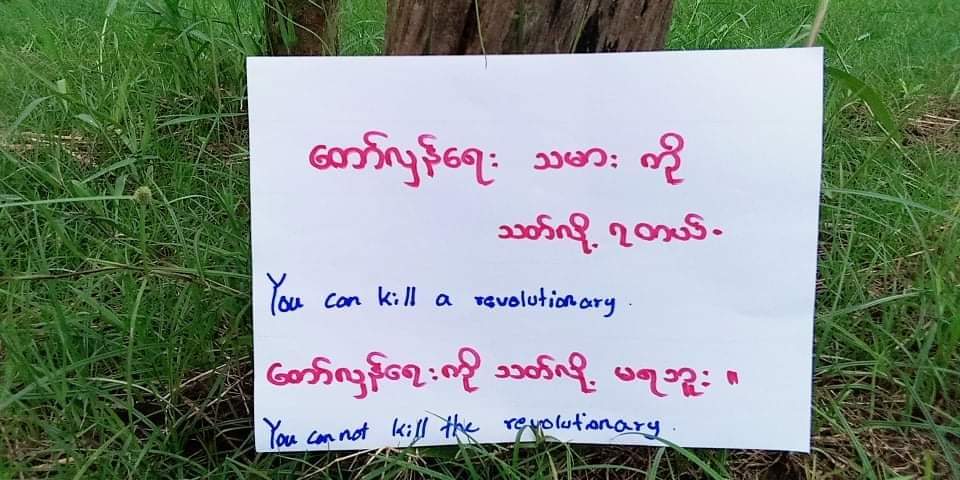 တော်လှန်ရေး သမား ကို
သတ်လို့ ရတယ်-
You can kill a revolutionary.
တော်လှန်ရေးကို သတ်လို့ မရဘူး ။
You can not kill the revolutionary.